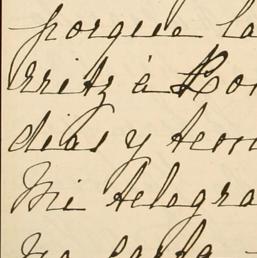 porque la
rritz á Ro
dias y tem
Mi telegra